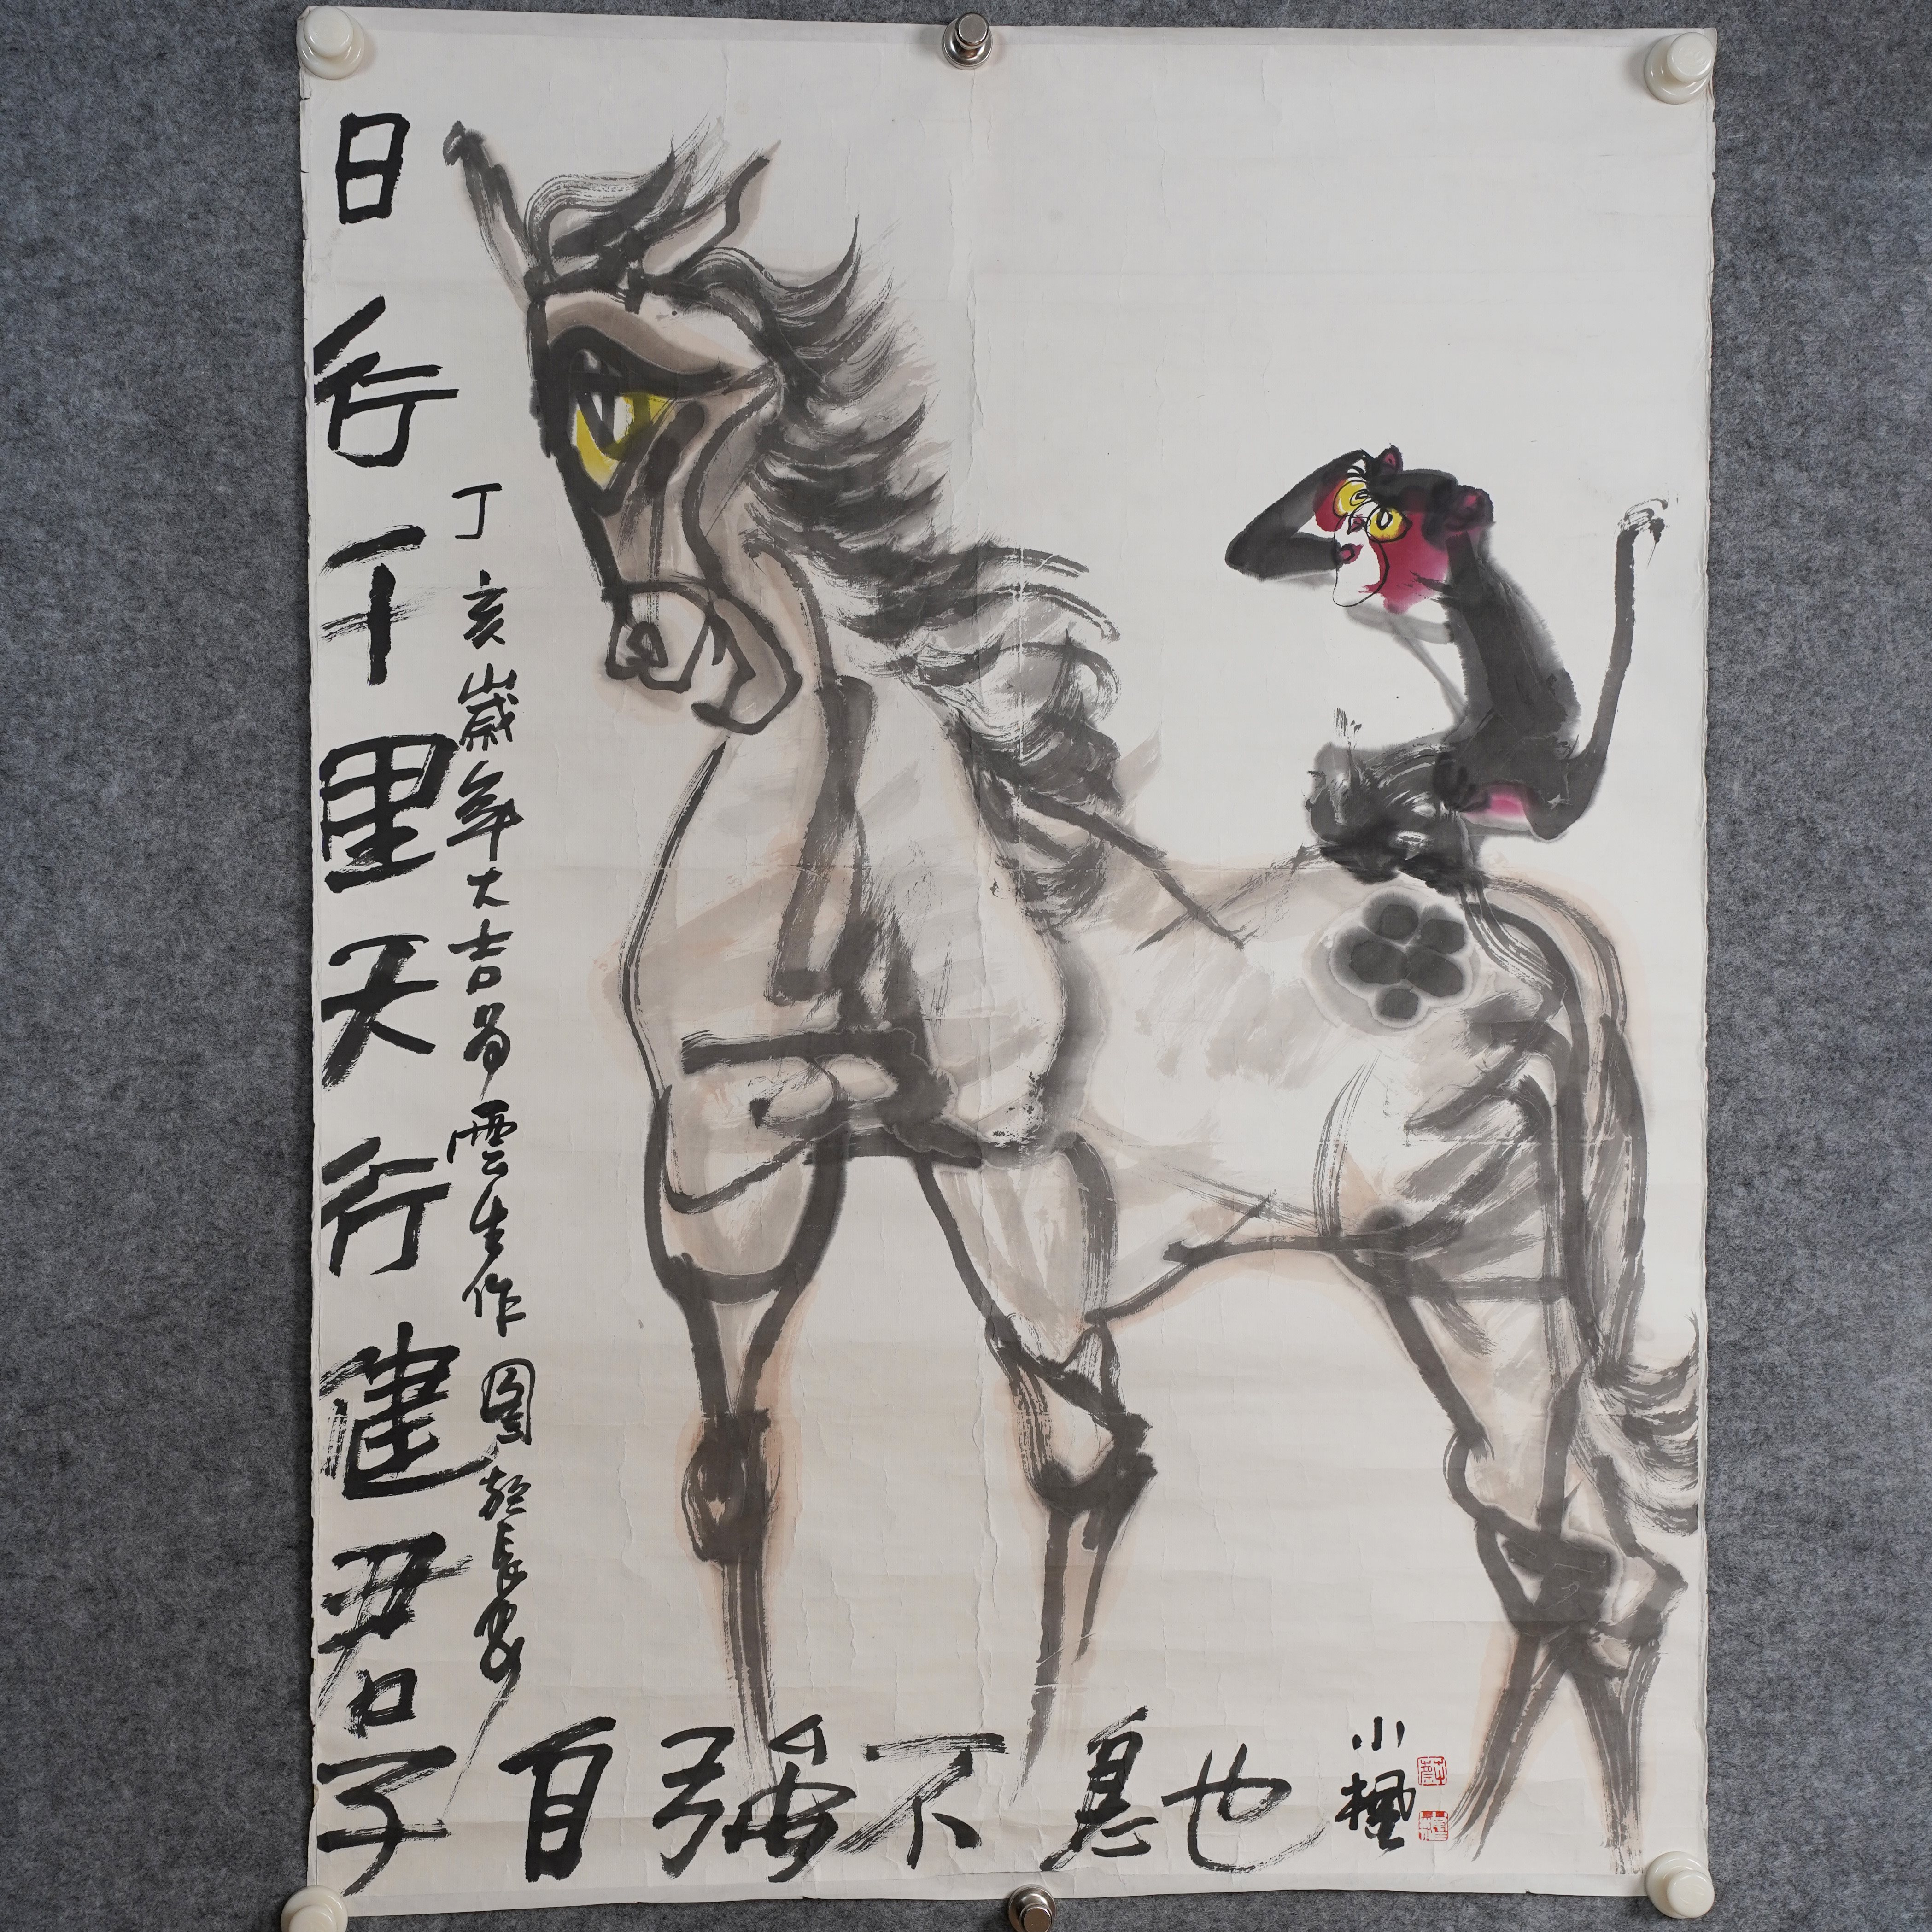 日行千里天行健君子
自强不息也
丁亥歲年大吉昌雲生作圖於長安
小楓